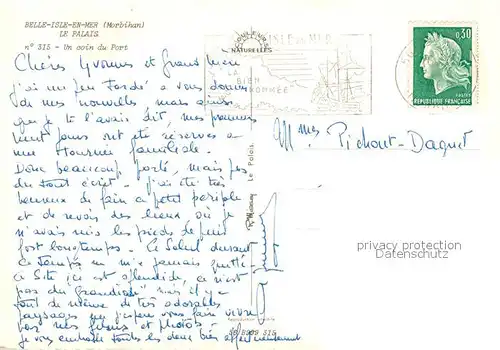 BELLE-ISLE-EN-MER (Morbihan)
LE PALAIS.
n° 315 - Un coin du Port
Chères Yvonnes et Grand Mère
j'ai un peu tardé à vous donner
de mes nouvelles mais ainsi
que je te l'avais dit, mes premiers
jours ont été réservés à
une tournée familiale.
Donc beaucoup parlé, mais pas
du tout écrit. J'ai été très
heureux de faire ce petit périple
et de revoir des lieux où je
n'avais mis les pieds depuis
fort longtemps. Le Soleil durant
ce temps ne m'a jamais quitté.
Ce Site ici est splendide, ce n'est
pas du "grandiose" mais il y a
tout de même de très adorables
paysages que j'espère vous faire vivre
par mes films et photos.
je vous embrasse toutes les deux bien affectueusement
NATURELLES
ISLE EN MER
LA
BIEN
NOMMÉE
0,30
REPUBLIQUE FRANÇAISE
Mmes Pichout-Daguet
Le Palais.
315
privacy protection
Datenschutz